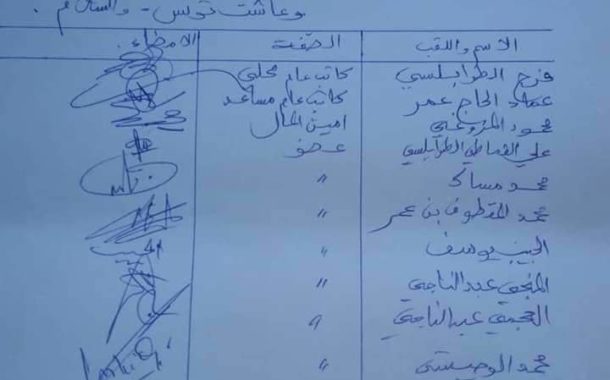 وعاشت تونس - والسلام.
الاسم واللقب الصفة الامضاء
فرج الطرابلسي كاتب عام محلي
عماد الحاج عمر كاتب عام مساعد
محمود المزوغي امين المال
علي القماطي الطرابلسي عضو
محمد مساك "
محمد المقطوف بن عمر "
الحبيب يوسف "
المنجي عبد الناجي "
العجمي عبد الناجي "
محمد الوحيشي "